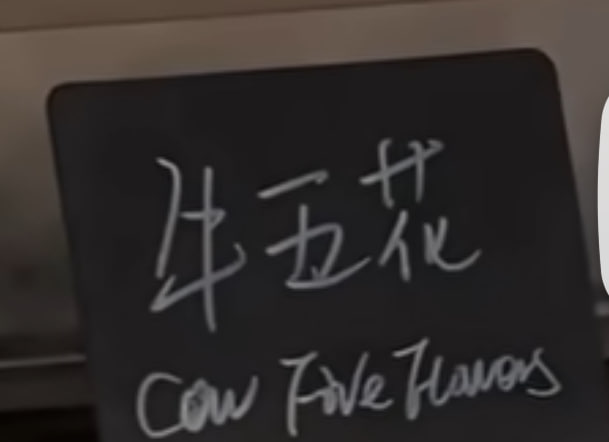 牛五花
Cow Five Flavors